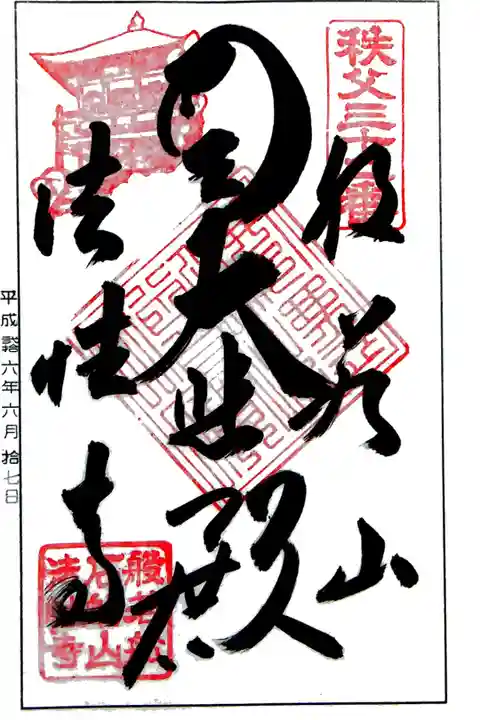 秩父三十二番
般若山
大悲殿
法性寺
石船山
法性寺
平成六年六月拾七日